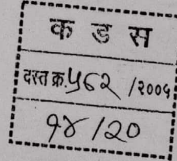 क ड स
दस्त क्र.५६२ /२००५
१४/२०